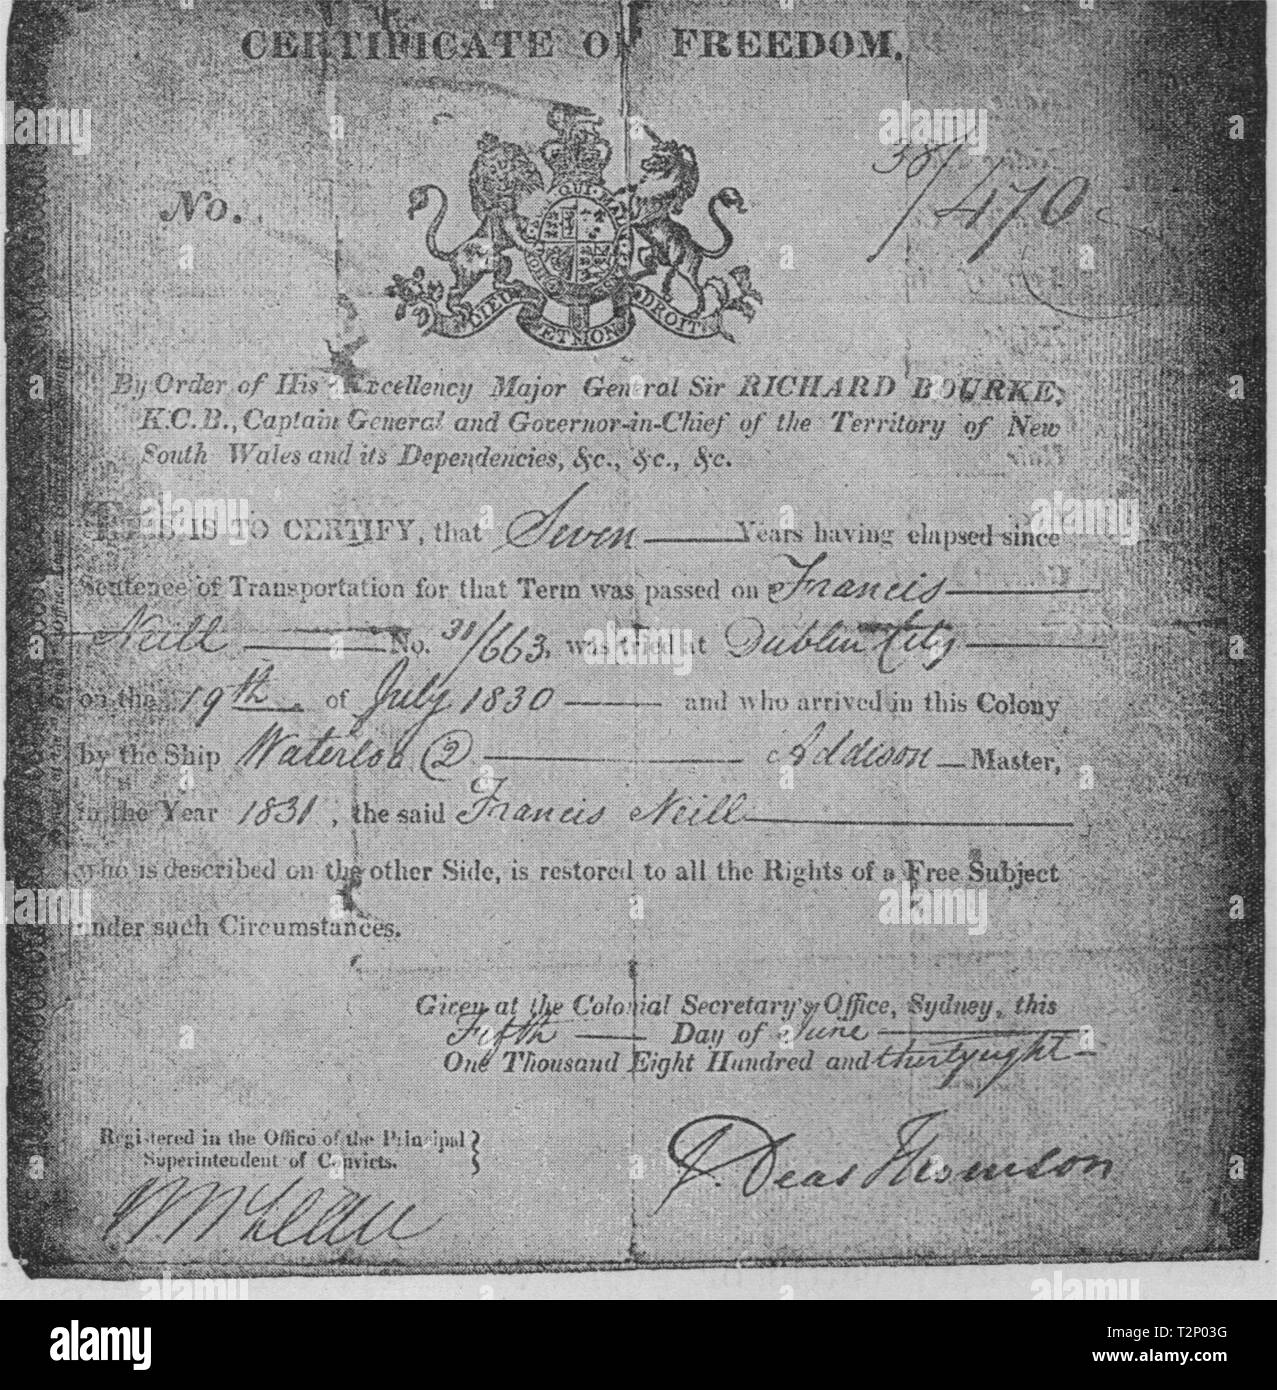 CERTIFICATE OF FREEDOM.
No.
38/470
HONI SOIT QUI MAL Y
DIEU ET MON DROIT
By Order of His Excellency Major General Sir RICHARD BOURKE,
K.C.B., Captain General and Governor-in-Chief of the Territory of New
South Wales and its Dependencies, &c., &c., &c.
THIS IS TO CERTIFY, that Seven Years having elapsed since
Sentence of Transportation for that Term was passed on Francis
Neill No. 31/663, was tried at Dublin City
on the 19th of July 1830 and who arrived in this Colony
by the Ship Waterloo (2) Addison Master,
in the Year 1831, the said Francis Neill
who is described on the other Side, is restored to all the Rights of a Free Subject
under such Circumstances.
Given at the Colonial Secretary's Office, Sydney, this
Fifth Day of June
One Thousand Eight Hundred and thirty eight
Registered in the Office of the Principal
Superintendent of Convicts.
E. Deas Thomson
alamy
alamy
Image ID: T2P03G
www.alamy.com